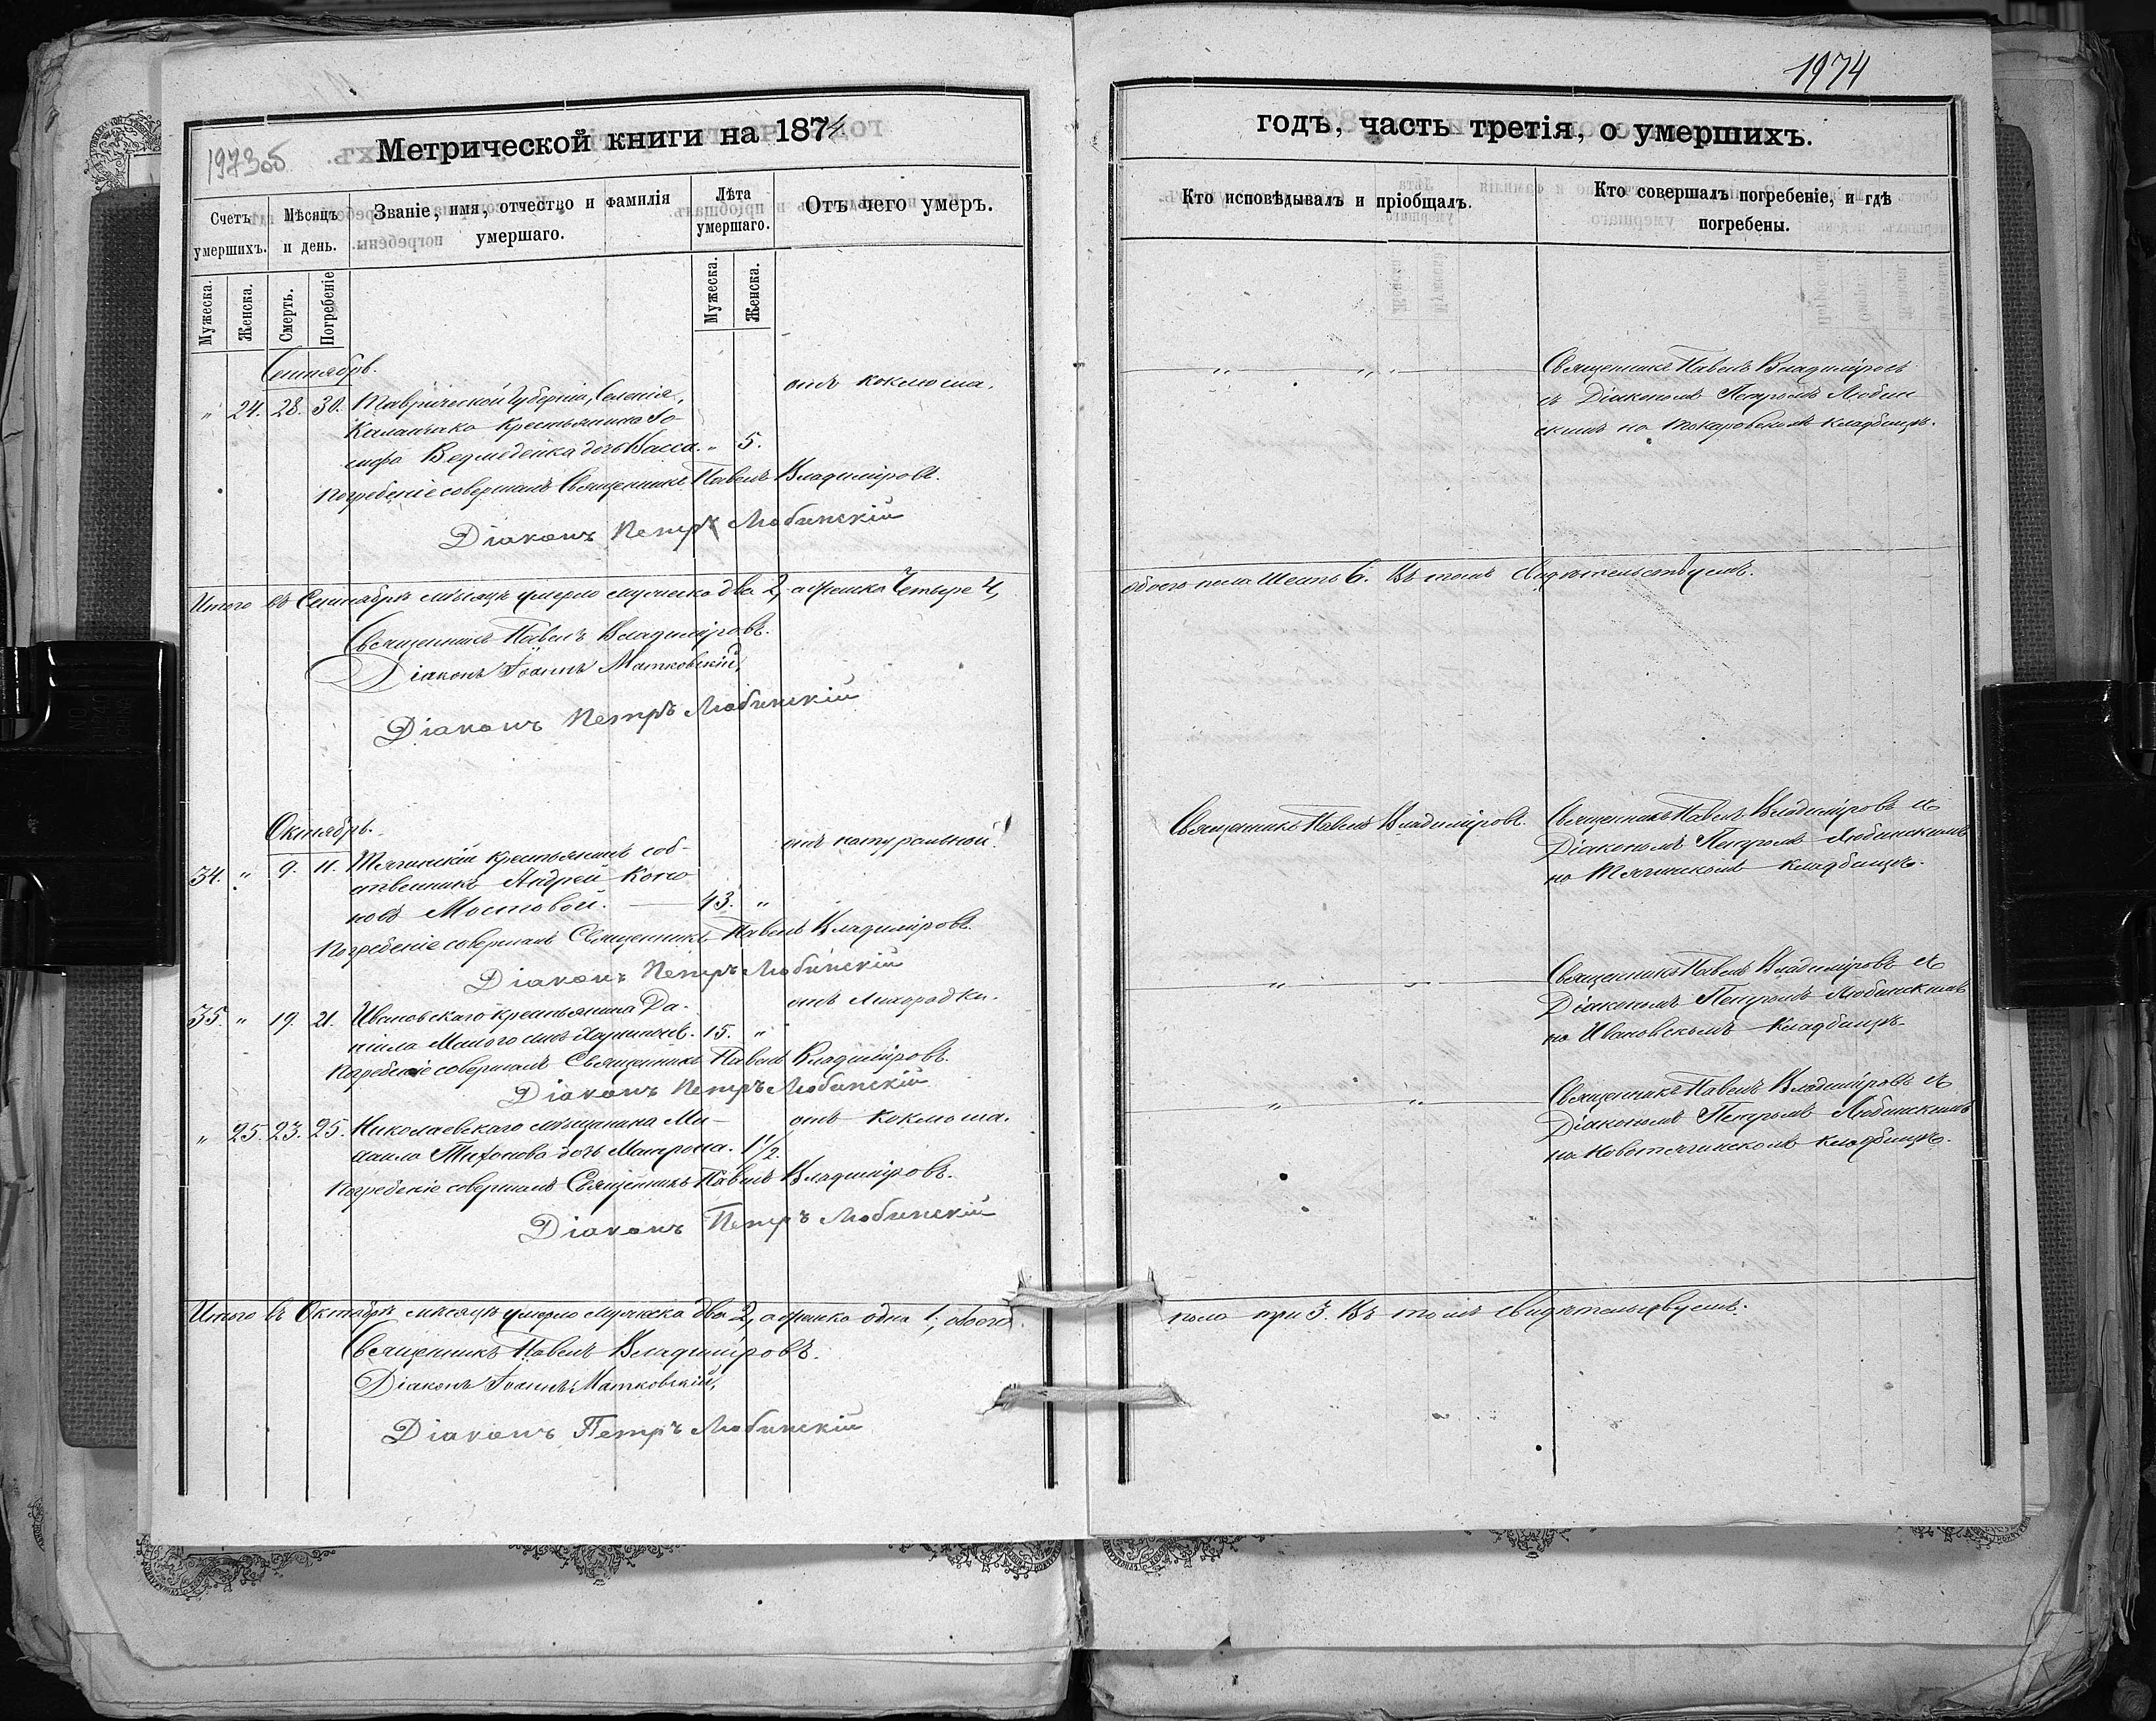 1973об
Метрической книги на 1874
Счетъ умершихъ.
Мѣсяцъ и день.
Званіе, имя, отчество и фамилія умершаго.
Лѣта умершаго.
Отъ чего умеръ.
Мужеска.
Женска.
Смерть.
Погребеніе
Мужеска.
Женска.
Сентябрь.
" 24. 28. 30. Таврической Губерніи, Селенія, отъ коклюша.
Каланчака крестьянина Іо-
сифа Ведмеденка дочь Васса. " 5.
Погребеніе совершалъ Священникъ Павелъ Владиміровъ.
Діаконъ Петръ Любинскій
Итого въ Сентябрѣ мѣсяцѣ умерло мужеска два 2, а женска Четыре 4,
Священникъ Павелъ Владиміровъ.
Діаконъ Іоаннъ Матковскій,
Діаконъ Петръ Любинскій
Октябрь.
34. " 9. 11. Тягинскій крестьянинъ соб- отъ натуральной.
ственникъ Андрей Коно
новъ Мостовой. 43. "
Погребеніе совершалъ Священникъ Павелъ Владиміровъ.
Діаконъ Петръ Любинскій
35. " 19. 21. Ивановскаго крестьянина Да- отъ Лихорадки.
ніила сынъ 15. "
Погребеніе совершалъ Священникъ Павелъ Владиміровъ.
Діаконъ Петръ Любинскій
" 25. 23. 25. Николаевскаго мѣщанина Ми- отъ коклюша.
хаила Тихонова дочь Матрона. 1 1/2.
Погребеніе совершалъ Священникъ Павелъ Владиміровъ.
Діаконъ Петръ Любинскій
Итого въ Октябрѣ мѣсяцѣ умерло мужеска два 2, а женска одна 1; обоего
Священникъ Павелъ Владиміровъ.
Діаконъ Іоаннъ Матковскій,
Діаконъ Петръ Любинскій
1974
годъ, часть третія, о умершихъ.
Кто исповѣдывалъ и пріобщалъ.
Кто совершалъ погребеніе, и гдѣ погребены.
" " Священникъ Павелъ Владиміровъ
съ Діакономъ Петромъ Любин
скимъ на Токаровскомъ кладбищѣ.
обоего пола Шесть 6. Въ томъ свидѣтельствуемъ.
Священникъ Павелъ Владиміровъ. Священникъ Павелъ Владиміровъ съ
Діакономъ Петромъ Любинскимъ
на Тягинскомъ кладбищѣ.
" " Священникъ Павелъ Владиміровъ съ
Діакономъ Петромъ Любинскимъ
на Ивановскомъ кладбищѣ.
" " Священникъ Павелъ Владиміровъ съ
Діакономъ Петромъ Любинскимъ
на Новотягинскомъ кладбищѣ.
пола три 3. Въ томъ свидѣтельствуемъ.